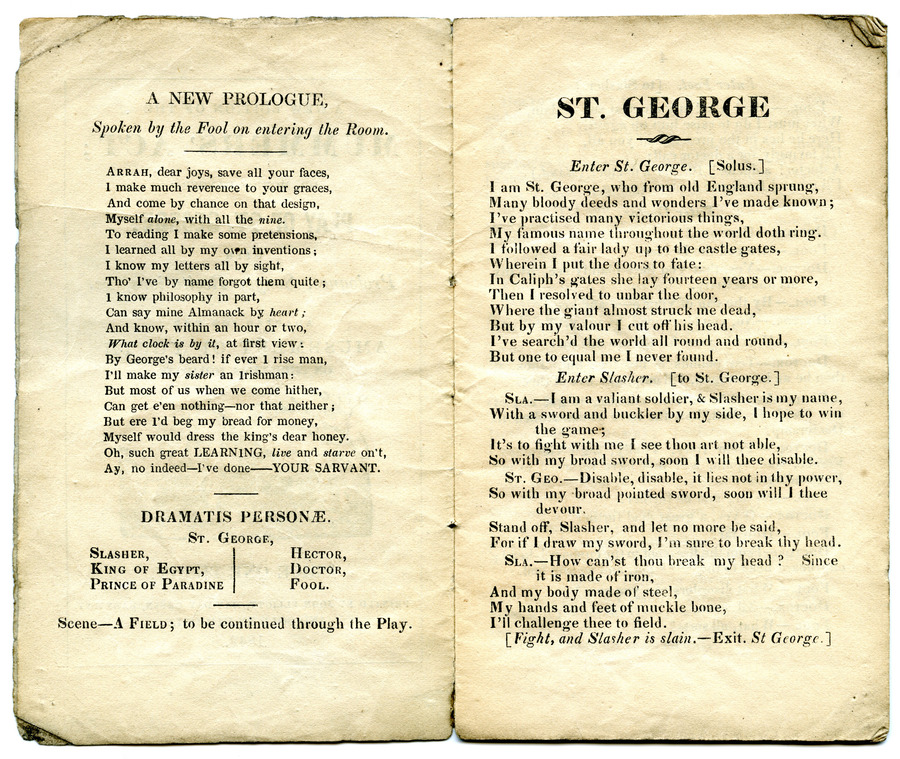 A NEW PROLOGUE,
Spoken by the Fool on entering the Room.
ARRAH, dear joys, save all your faces,
I make much reverence to your graces,
And come by chance on that design,
Myself alone, with all the nine.
To reading I make some pretensions,
I learned all by my own inventions;
I know my letters all by sight,
Tho' I've by name forgot them quite;
1 know philosophy in part,
Can say mine Almanack by heart;
And know, within an hour or two,
What clock is by it, at first view:
By George's beard! if ever 1 rise man,
I'll make my sister an Irishman:
But most of us when we come hither,
Can get e'en nothing—nor that neither;
But ere I'd beg my bread for money,
Myself would dress the king's dear honey.
Oh, such great LEARNING, live and starve on't,
Ay, no indeed—I've done——YOUR SARVANT.
DRAMATIS PERSONÆ.
ST. GEORGE,
SLASHER,
KING OF EGYPT,
PRINCE OF PARADINE
HECTOR,
DOCTOR,
FOOL.
Scene—A FIELD; to be continued through the Play.
ST. GEORGE
Enter St. George. [Solus.]
I am St. George, who from old England sprung,
Many bloody deeds and wonders I've made known;
I've practised many victorious things,
My famous name throughout the world doth ring.
I followed a fair lady up to the castle gates,
Wherein I put the doors to fate:
In Caliph's gates she lay fourteen years or more,
Then I resolved to unbar the door,
Where the giant almost struck me dead,
But by my valour I cut off his head.
I've search'd the world all round and round,
But one to equal me I never found.
Enter Slasher. [to St. George.]
SLA.—I am a valiant soldier, & Slasher is my name,
With a sword and buckler by my side, I hope to win
the game;
It's to fight with me I see thou art not able,
So with my broad sword, soon I will thee disable.
ST. GEO.—Disable, disable, it lies not in thy power,
So with my broad pointed sword, soon will I thee
devour.
Stand off, Slasher, and let no more be said,
For if I draw my sword, I'm sure to break thy head.
SLA.—How can'st thou break my head? Since
it is made of iron,
And my body made of steel,
My hands and feet of muckle bone,
I'll challenge thee to field.
[Fight, and Slasher is slain.—Exit. St George.]